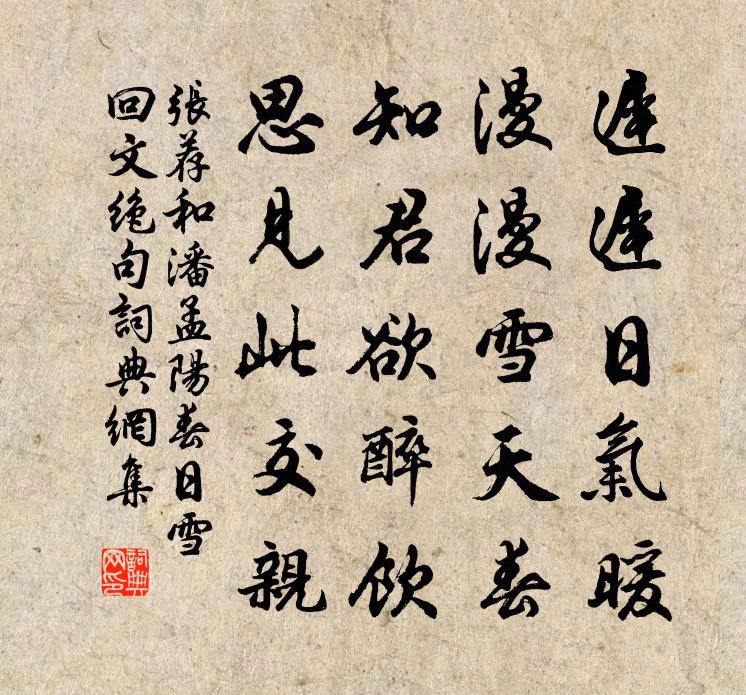 遲遲日氣暖
漫漫雪天春
知君欲醉飲
思見此交親
張荐和潘孟陽春日雪
回文絶句詞典網集
詞典网印